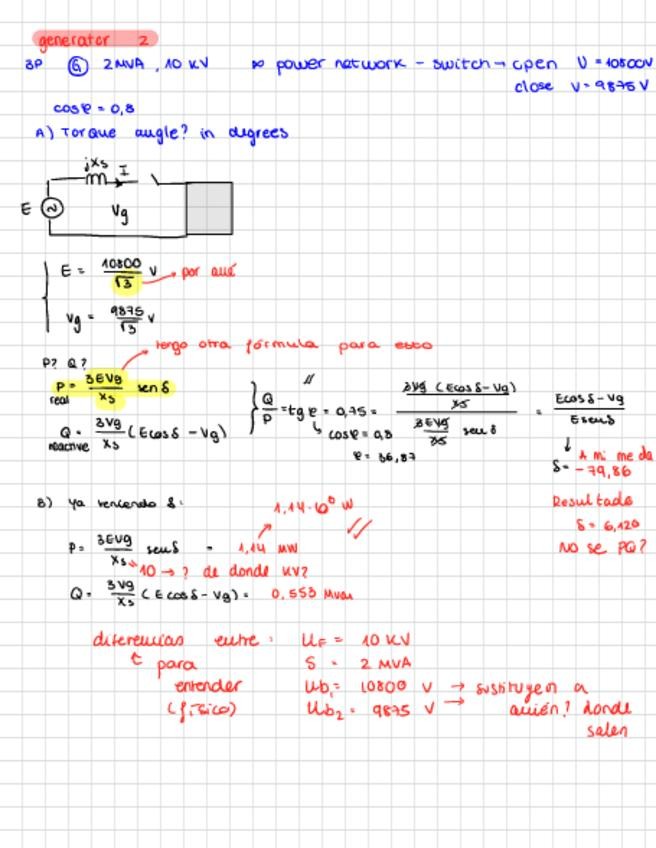 generator 2
3P G 2 MVA, 10 KV ∞ power network - switch → open U = 10800V
close V = 9875 V
cosφ = 0,8
A) Torque angle? in degrees
jXs I
E Vg
E = 10800/√3 V → por qué
Vg = 9875/√3 V
tengo otra fórmula para esto
P? Q?
P = 3EVg/Xs senδ
real
Q = 3Vg/Xs (Ecosδ - Vg)
reactive
Q/P = tgφ = 0,75 = 3Vg (Ecosδ - Vg)/Xs / 3EVg/Xs senδ = Ecosδ - Vg / Esenδ
cosφ = 0,8
φ = 36,87
A mi me da
δ = -79,86
Resultado
δ = 6,120
NO se PQ?
B) Ya teniendo δ:
1,14·10⁶ W
P = 3EVg/Xs senδ = 1,14 MW
10 → ? de donde KV?
Q = 3Vg/Xs (Ecosδ - Vg) = 0,553 Mvar
diferencias entre: UF = 10 KV
para S = 2 MVA
entender Ub1 = 10800 V → sustituyen a
(físico) Ub2 = 9875 V → quién? donde
salen